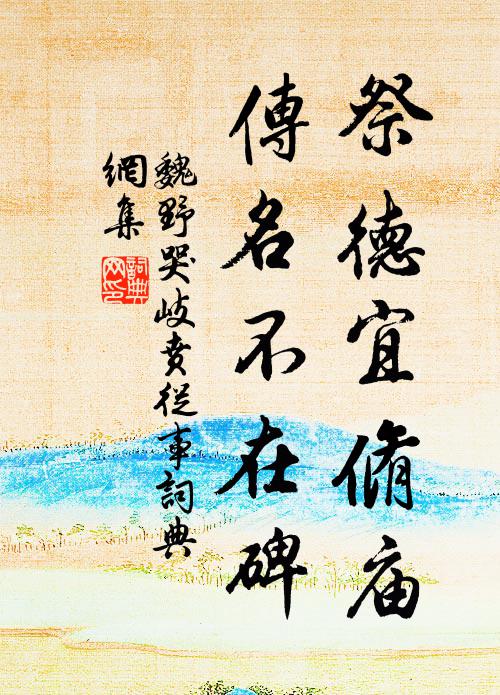 祭德宜脩庙
傳名不在碑
魏野哭岐賁從事詞典
網集
詞典網印